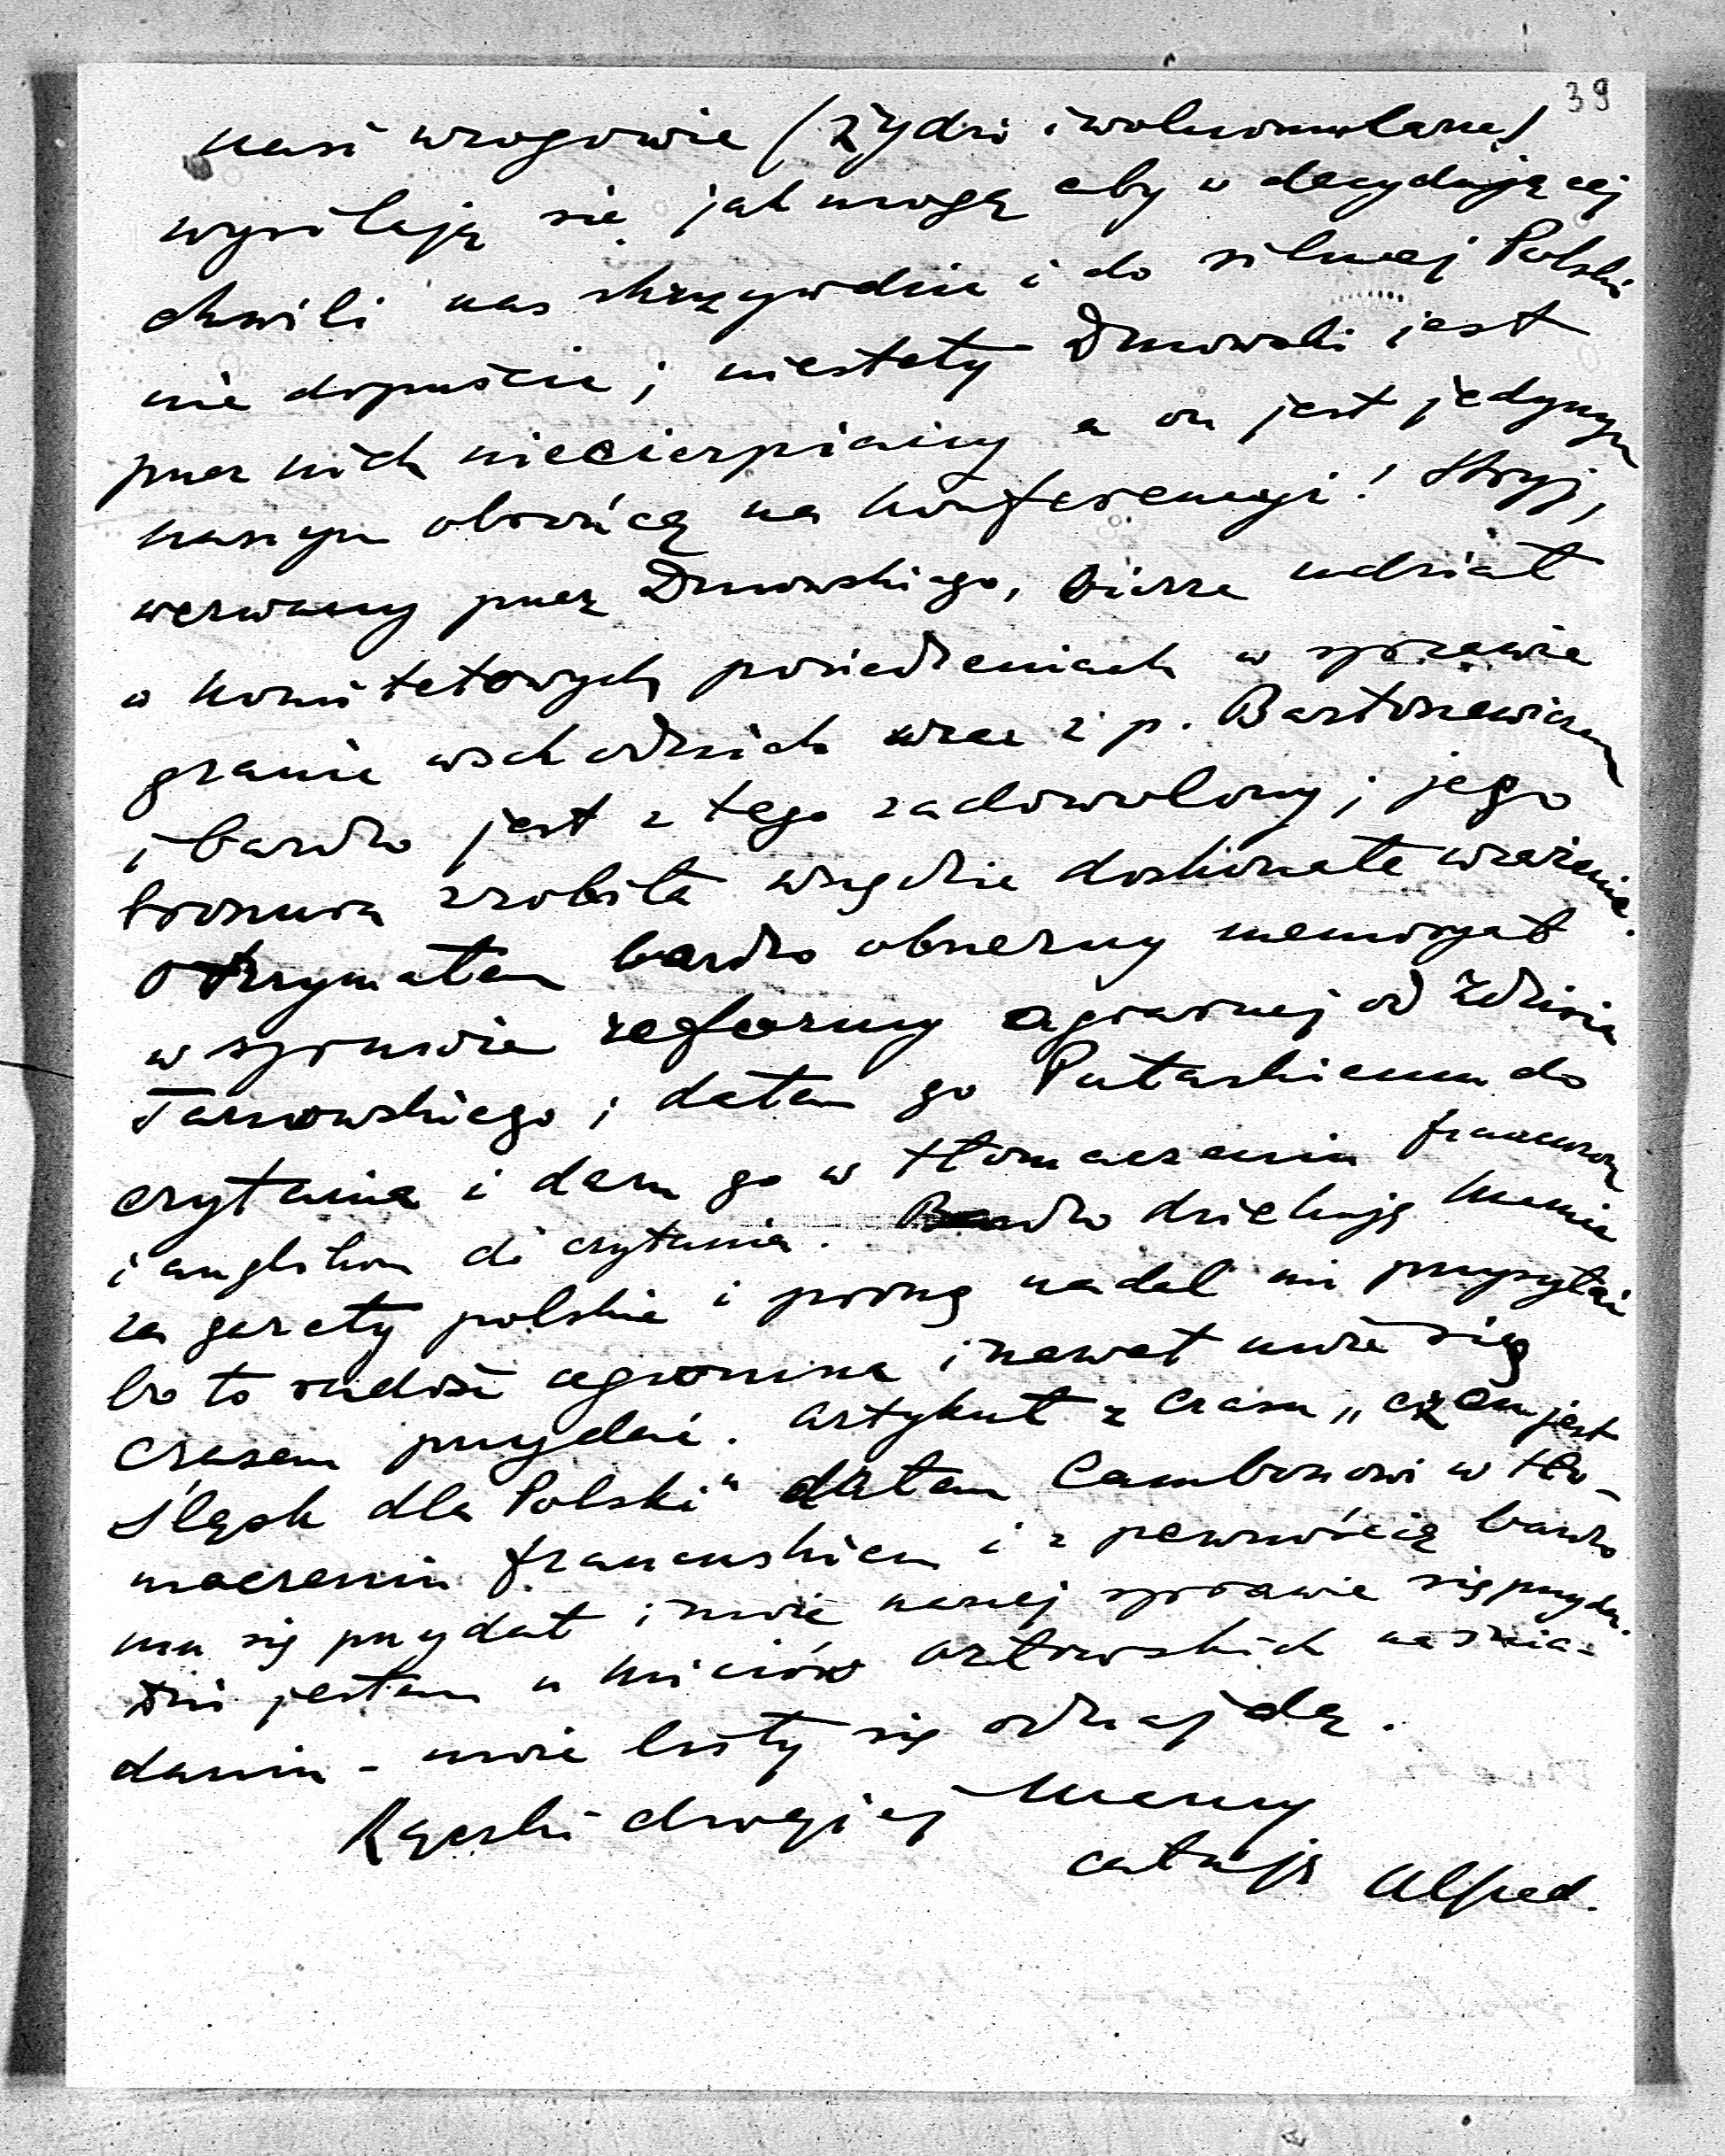 39
nasi wrogowie (Żydzi i wolnomularze)
wysilają się jak mogą aby w decydującej
chwili nas skrzywdzić i do silnej Polski
nie dopuścić; niestety Dmowski jest
przez nich niecierpiany a on jest jedynym
naszym obrońcą na konferencyi! Stryj,
wezwany przez Dmowskiego, bierze udział
w komitetowych posiedzeniach w sprawie
granic wschodnich wraz z p. Bartoszewiczem
i bardzo jest z tego zadowolony; jego
broszura zrobiła wszędzie doskonałe wrażenie.
Otrzymałem bardzo obszerny memoryał
w sprawie reformy agrarnej od Zdzisia
Tarnowskiego; dałem go Putaskiemu do
czytania i dam go w tłomaczeniu francuzom
i anglikom do czytania. Bardzo dziękuję Mamie
za gazety polskie i proszę nadal mi przysyłać
bo to radość ogromna i nawet może się
czasem przydać. Artykuł z Czasu „czem jest
Śląsk dla Polski" dałem Cambonowi w tło-
maczeniu francuskiem i z pewnością bardzo
mu się przydał i może naszej sprawie się przyda.
Dziś jestem u Miciów Orłowskich na śnia-
daniu - może listy się odnajdą.
Rączki drogiej Mamy
całuję Alfred.